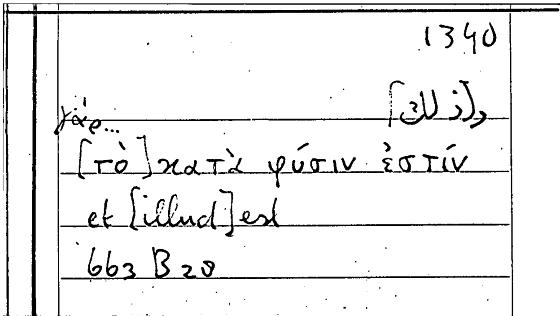 1340
γὰρ...
[τὸ] κατὰ φύσιν ἐστίν
et [illud] est
663 B 20